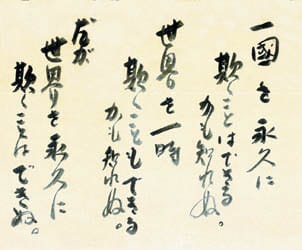 一國を永久に
欺くことはできる
かも知れぬ。
世界を一時
欺くこともできる
かも知れぬ。
だが
世界を永久に
欺くことはできぬ。